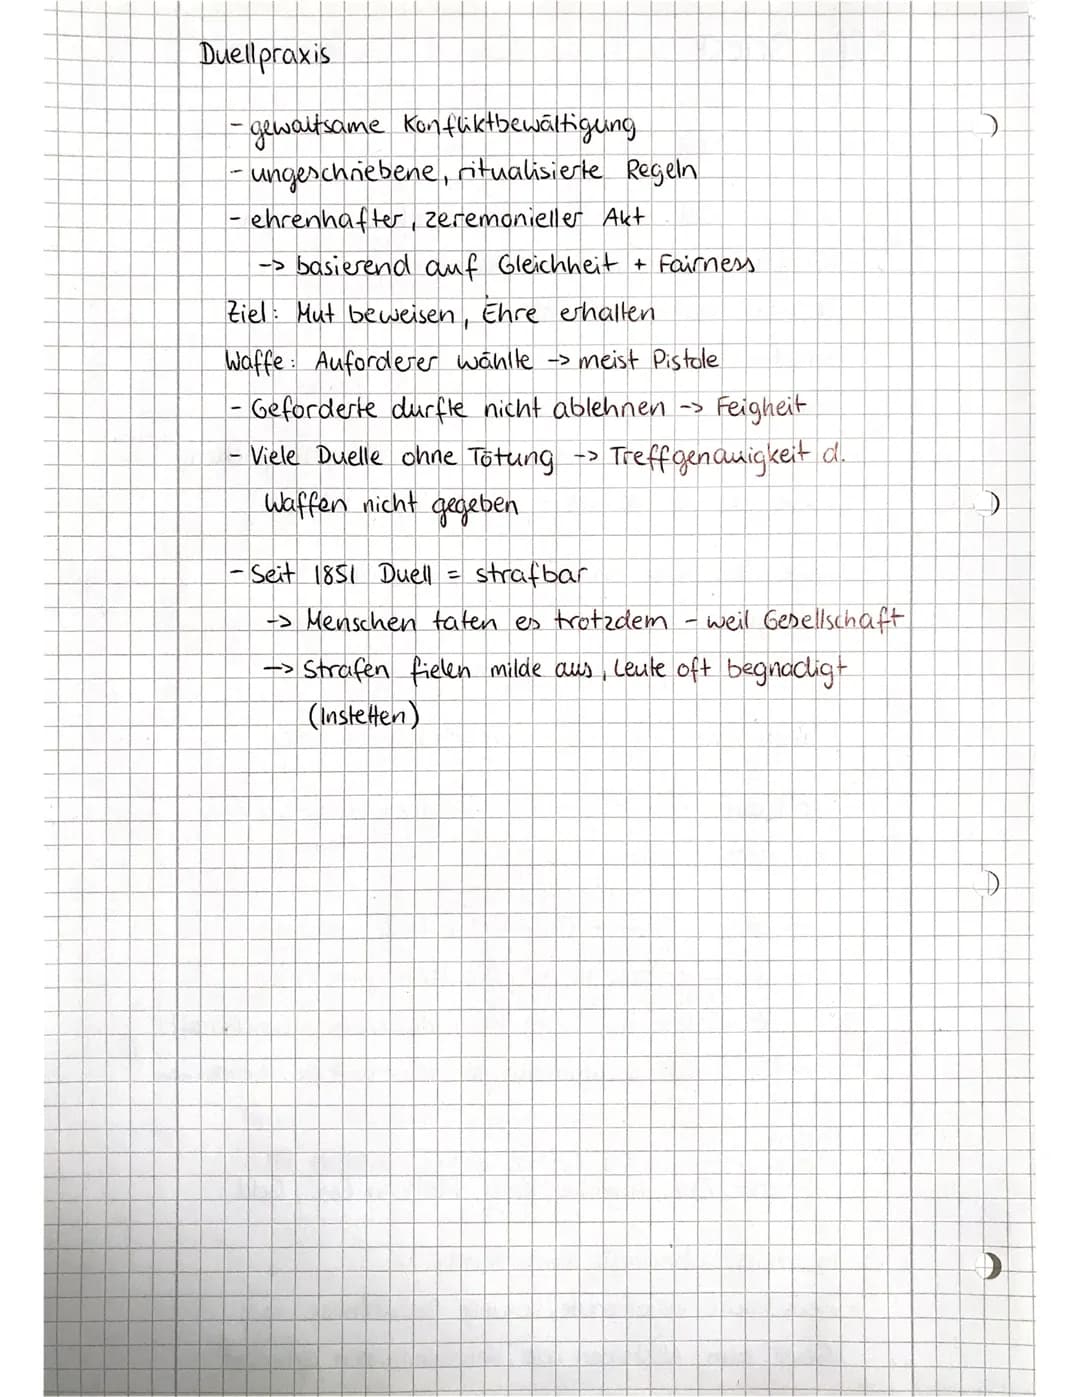 Duellpraxis
- gewaltsame Konfliktbewältigung
- ungeschriebene, ritualisierte Regeln
- ehrenhafter, zeremonieller Akt
-> basierend auf Gleichheit + Fairness
Ziel: Mut beweisen, Ehre erhalten
Waffe: Auforderer wählte -> meist Pistole
- Geforderte durfte nicht ablehnen -> Feigheit
- Viele Duelle ohne Tötung -> Treffgenauigkeit d.
Waffen nicht gegeben
- Seit 1851 Duell = strafbar
-> Menschen taten es trotzdem - weil Gesellschaft
-> Strafen fielen milde aus, Leute oft begnadigt
(Instetten)